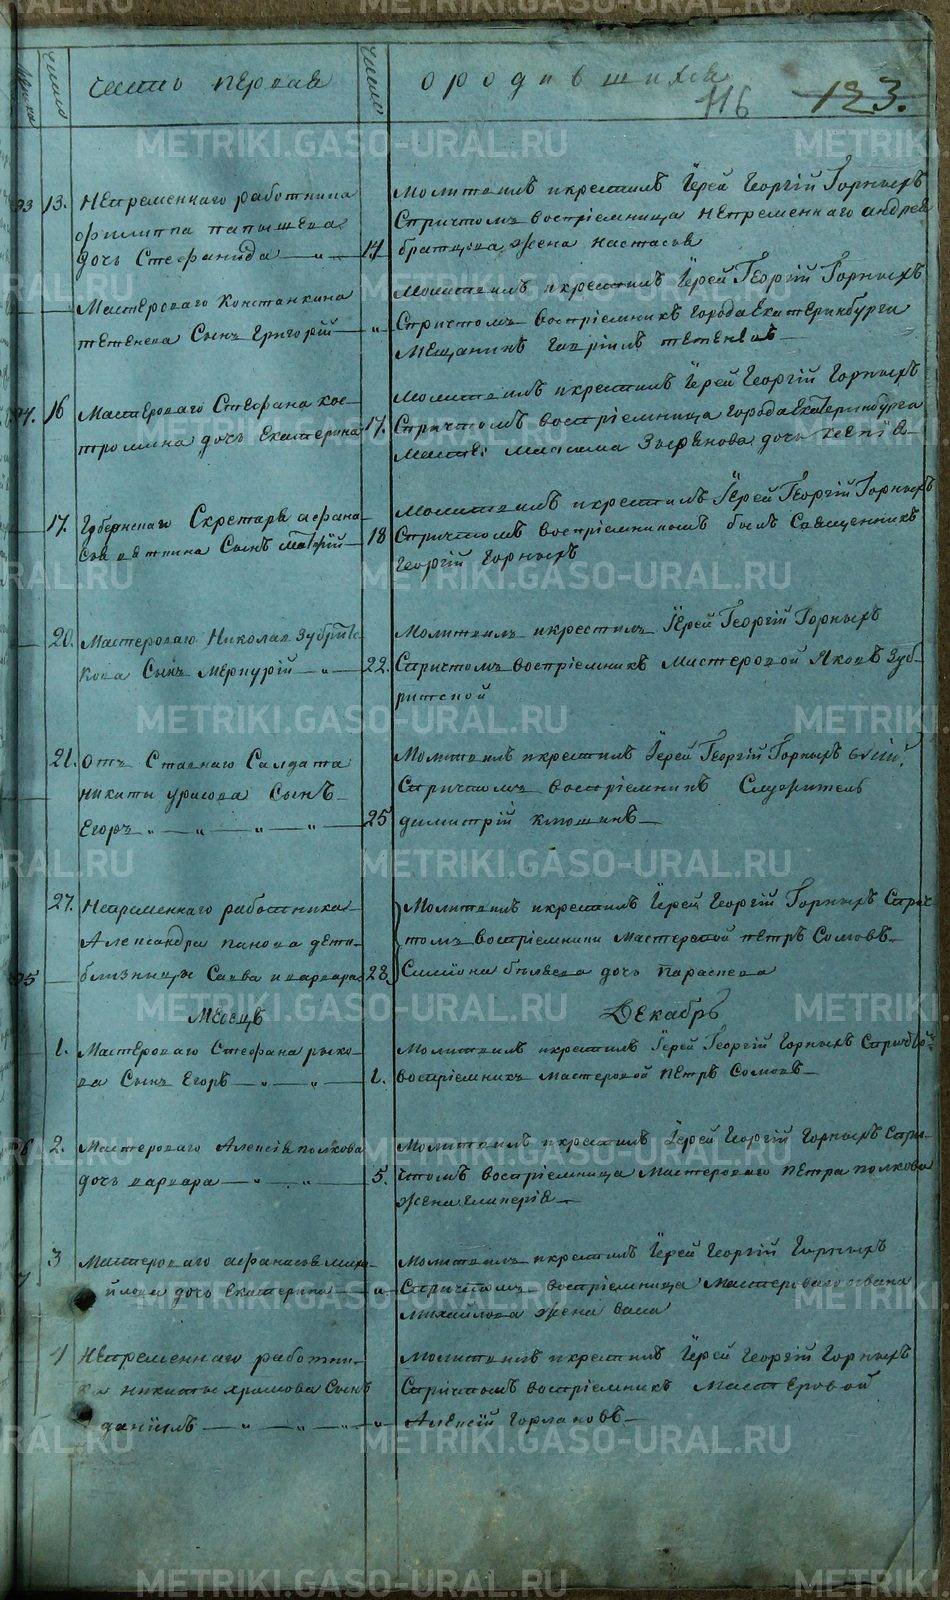 часть первая
о родившихся
116 123.
число
число
93 13. Непременнаго работника
Филиппа папышева
дочь Стефанида 14
Молитвилъ икрестилъ Іерей Георгій Горныхъ
Спричтомъ воспріемница непременнаго андрея
братцова жена настасья
Мастероваго Констанкина
тетенева Сынъ Григорій "
Молитвилъ икрестилъ Іерей Георгій Горныхъ
Спричтомъ воспріемникъ города Екатеринбурга
Мещанинъ Гавріилъ тетеневъ
94. 16 Мастероваго Стефана кос-
тромина дочь Екатерина 17.
Молитвилъ икрестилъ Іерей Георгій Горныхъ
Спричтомъ воспріемница города Екатеринбурга
дочь
17. Губернскаго Скретаря афана
Сынъ 18
Молитвилъ икрестилъ Іерей Георгій Горныхъ
Спричтомъ воспріемникомъ былъ Священникъ
Георгій Горныхъ
20. Мастероваго Николая Зубритс-
кова Сынъ Меркурій " 22.
Молитвилъ икрестилъ Іерей Георгій Горныхъ
Спричтомъ воспріемникъ Мастеровой Яковъ Зуб-
ритской
21. отъ Ставнаго Салдата
никиты урасова Сынъ
Егоръ " " " " 25
Молитвилъ икрестилъ Іерей Георгій Горныхъ
Спричтомъ воспріемникъ Служитель
димитрій
27. Непременнаго работника
Александра панова дети
близнецы Савва иварвара 28.
Молитвилъ икрестилъ Іерей Георгій Горныхъ Сприч
томъ воспріемники Мастеровой петръ Сомовъ
Симіона бѣляева дочь Параскева
95
Месецъ Декабрь
1. Мастероваго Стефана рыко-
ва Сынъ Егоръ " " 1.
Молитвилъ икрестилъ Іерей Георгій Горныхъ
воспріемникъ мастеровой Петръ Сомовъ
96 2. Мастероваго Алексія полкова
дочь варвара " " 5.
Молитвилъ икрестилъ Іерей Георгій Горныхъ Спри-
чтомъ воспріемница Мастероваго петра полкова
жена гликерія
3 Мастероваго афанасья миха-
йлова дочь Екатерина "
Молитвилъ икрестилъ Іерей Георгій Горныхъ
Спричтомъ воспріемница Мастероваго
Михайлова жена васа
4 Непременнаго работни-
ка никиты храмова Сынъ
даніилъ " " " "
Молитвилъ икрестилъ Іерей Георгій Горныхъ
Спричтомъ воспріемникъ мастеровой
Алексій горлановъ
METRIKI.GASO-URAL.RU